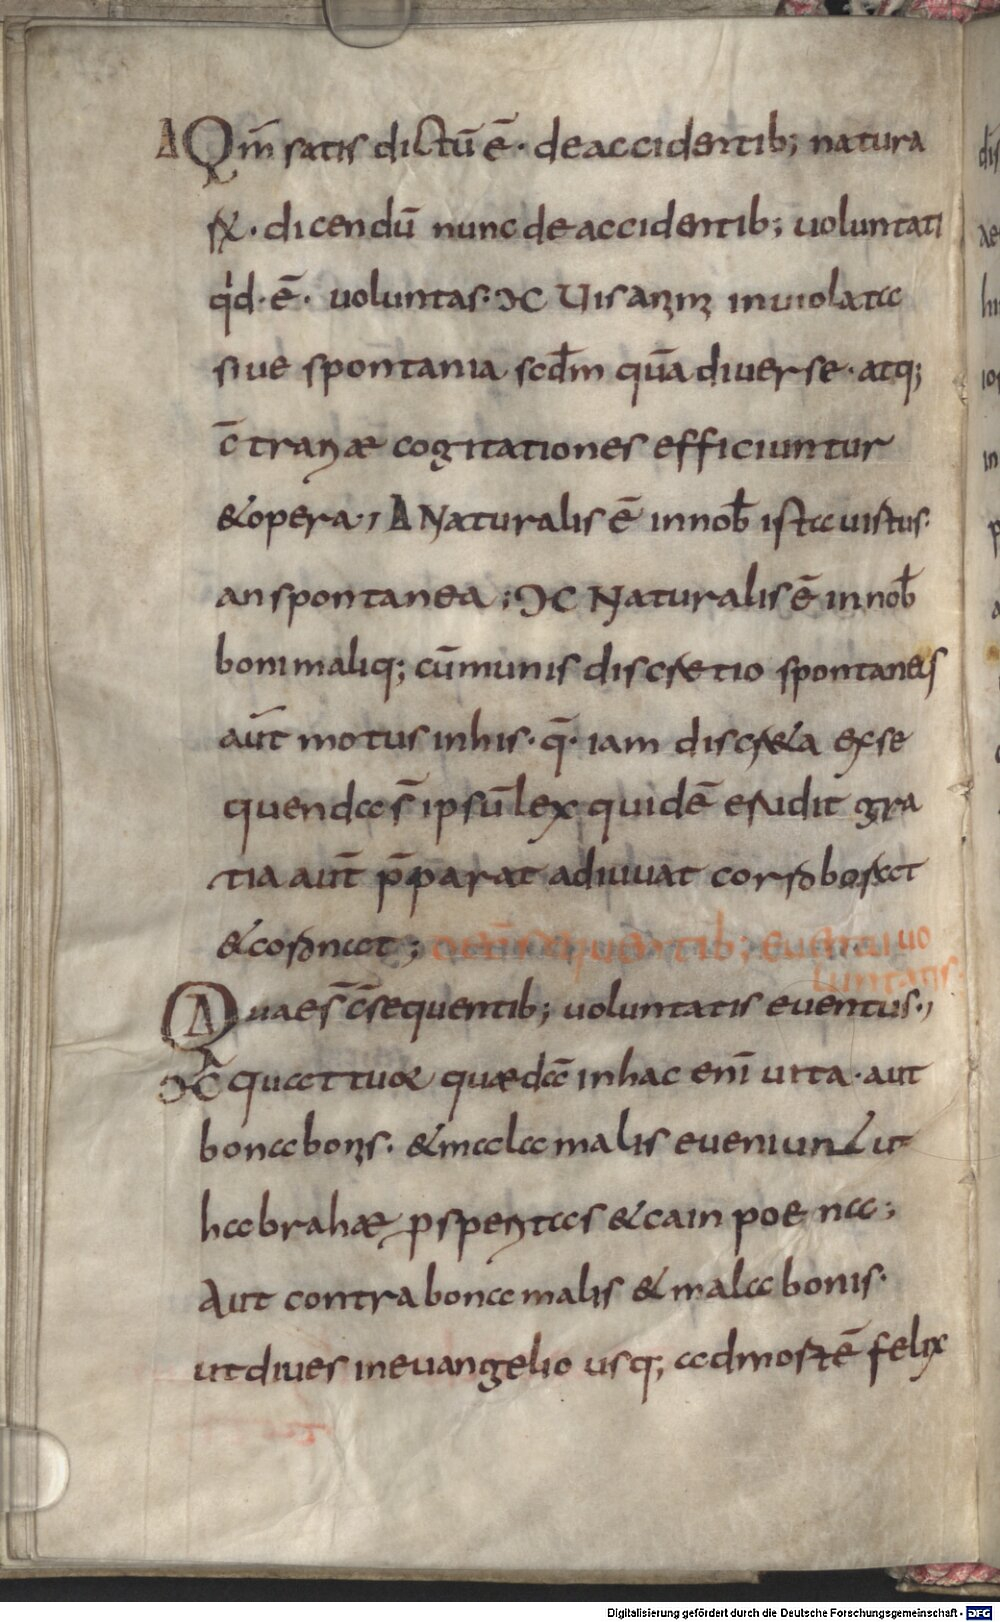 Δ Qm̄ satis dictū ē· deaccidentib; natura
rę· dicendū nunc deaccidentib; uoluntati
qd· ē· uoluntas· ƆC Uis animi inuiolata
siue spontania scd̄m quā diuerse· atq;
c̄trariæ cogitationes efficiuntur
&opera·, Δ Naturalis ē innob̄ ista uirtus·
anspontanea; ƆC Naturalis ē innob̄
bonimaliq; cūmunis discretio spontaneus
aūt motus inhis· q̄· iam discreta exse
quendas̄ ipsū lex quidē erudit gra
tia aūt p̄parat adiuuat corroborat
&coronat; de c̄sequentib; euentu uo
luntatis·
Quaes̄ c̄sequentib; uoluntatis euentus·,
ƆC quattuor quædā inhac enī uita· aut
bona bonis· &mala malis eueniunt ut
habrahæ prosperitas &cain poena;
Aut contra bona malis &mala bonis·
utdiues ineuangelio usq; admortē felix
Digitalisierung gefördert durch die Deutsche Forschungsgemeinschaft - DFG